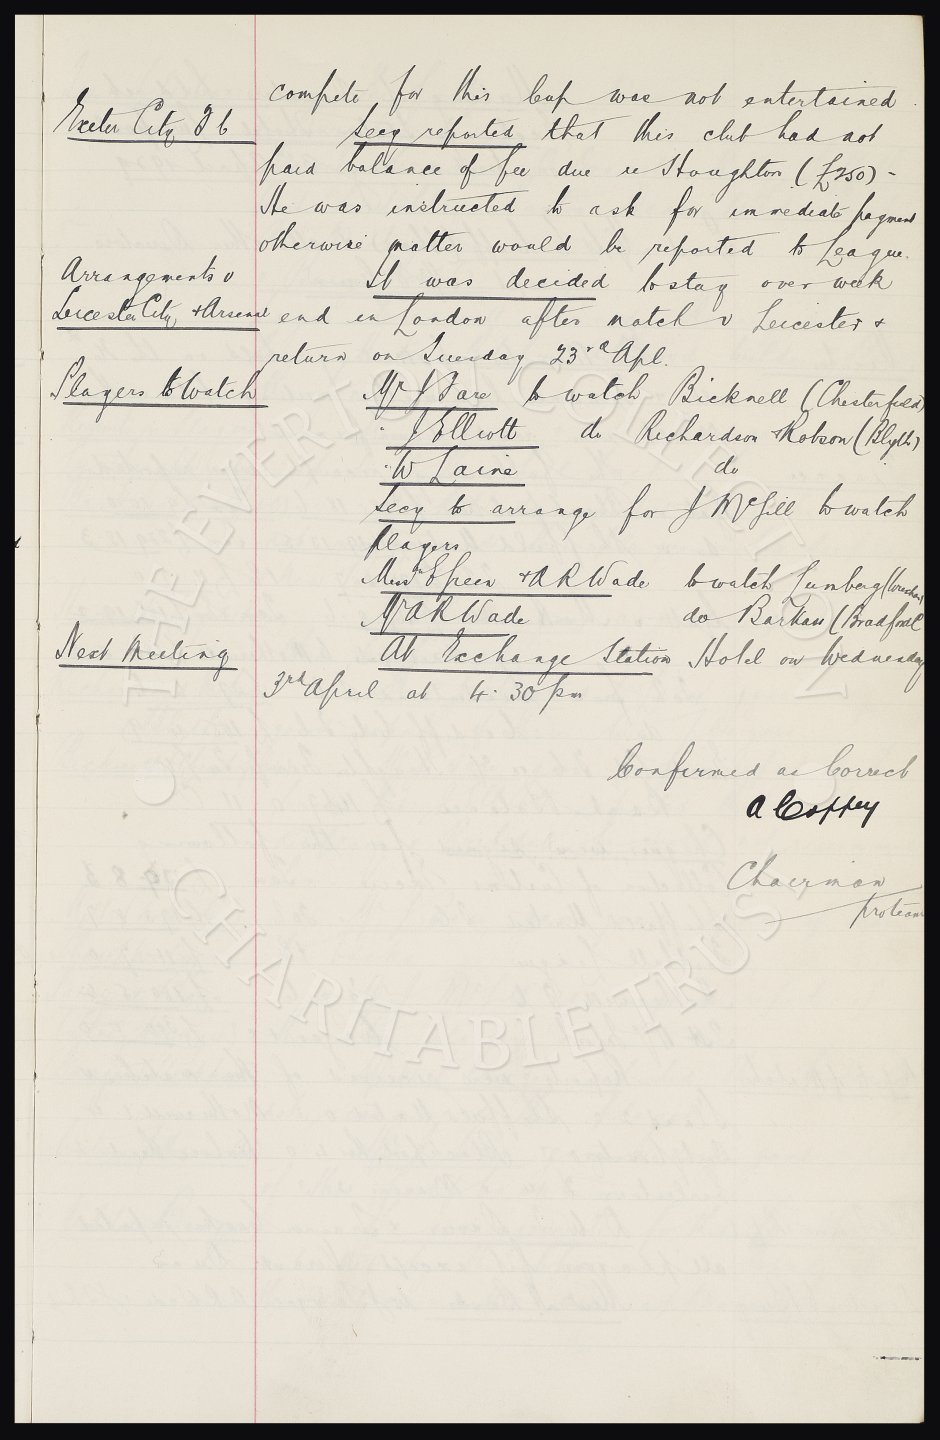 compete for this Cup was not entertained.
Exeter City F C
Secy reported that this club had not
paid balance of fee due re Houghton (£250) -
He was instructed to ask for immediate payment
otherwise matter would be reported to League.
Arrangements v
Leicester City & Arsenal
It was decided to stay over week
end in London after match v Leicester &
return on Tuesday 23rd Apl.
Players to Watch
Mr J Fare to watch Bicknell (Chesterfield)
" J Elliott do Richardson & Robson (Blyth)
" W Laine do
Secy to arrange for J McGill to watch
players
Messrs E Green & A R Wade to watch Lumberg (Wrexham)
Mr A R Wade do (Bradford C
Next Meeting
At Exchange Station Hotel on Wednesday
3rd April at 4.30 pm
Confirmed as Correct
A Coffey
Chairman
protem
THE EVERTON COLLECTION
CHARITABLE TRUST